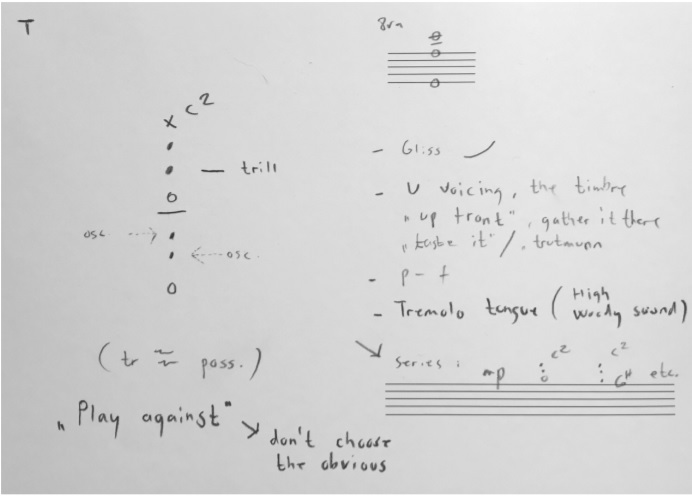 T
8va
x c2
trill
osc.
osc.
(tr ~ poss.)
„Play against"
don't choose
the obvious
- Gliss
- U voicing, the timbre
„up front", gather it there
„taste it"/, trutmunn
- p - f
- Tremolo tongue (High
Woody sound)
series: mp c2 c2 G# etc.